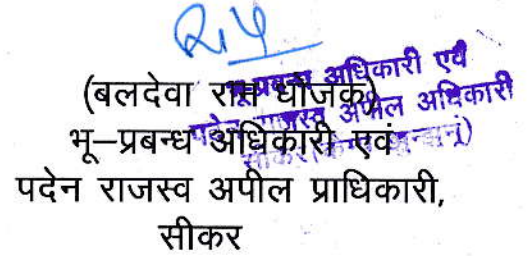 (बलदेवा राम धोजक)
भू–प्रबन्ध अधिकारी एवं
पदेन राजस्व अपील प्राधिकारी,
सीकर
भू-प्रबन्ध अधिकारी एवं
पदेन राजस्व अपील अधिकारी
सीकर